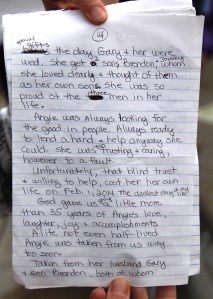 14
special
the day Gary & her were
wed. She got 2 sons, Brendon, whom
she loved dearly & thought of them
as her own sons. She was so
proud of the three men in her
life.
Angie was always looking for
the good in people. Always ready
to lend a hand & help anyway she
could. She was trusting & caring,
however to a fault.
Unfortunately, that blind trust
& willing to help, cost her her own
life on Feb. 1, 2014, the darkest day of my life
God gave us a little more
than 35 years of Angie's love,
laughter, joy & accomplishments
A life not even half-lived
Angie was taken from us way
too soon.
Taken from her husband Gary
& son Brendon, both of whom